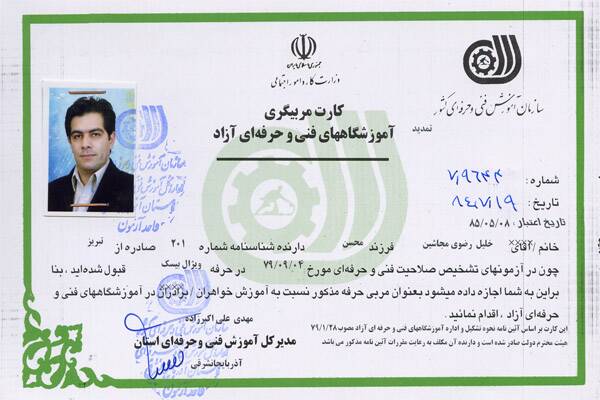 جمهوری اسلامی ایران
وزارت کار و امور اجتماعی
سازمان آموزش فنی و حرفه‌ای کشور
کارت مربیگری
آموزشگاههای فنی و حرفه‌ای آزاد
تمدید
شماره :
تاریخ :
تاریخ اعتبار : ۸۵/۰۵/۰۸
خانم / آقای خلیل رضوی مجانتین فرزند محسن دارنده شناسنامه شماره ۲۰۱ صادره از تبریز
چون در آزمونهای تشخیص صلاحیت فنی و حرفه‌ای مورخ ۷۹/۰۹/۰۴ در حرفه ویژال بیسک قبول شده‌اید ، بنا
براین به شما اجازه داده میشود بعنوان مربی حرفه مذکور نسبت به آموزش خواهران / برادران در آموزشگاههای فنی و
حرفه‌ای آزاد ، اقدام نمائید .
این کارت بر اساس آئین نامه نحوه تشکیل و اداره آموزشگاههای فنی و حرفه ای آزاد مصوب ۷۹/۱/۲۸
هیئت محترم دولت صادر شده است و دارنده آن مکلف به رعایت مقررات آئین نامه مذکور می باشد
مهدی علی اکبرزاده
مدیر کل آموزش فنی و حرفه‌ای استان
آذربایجانشرقی